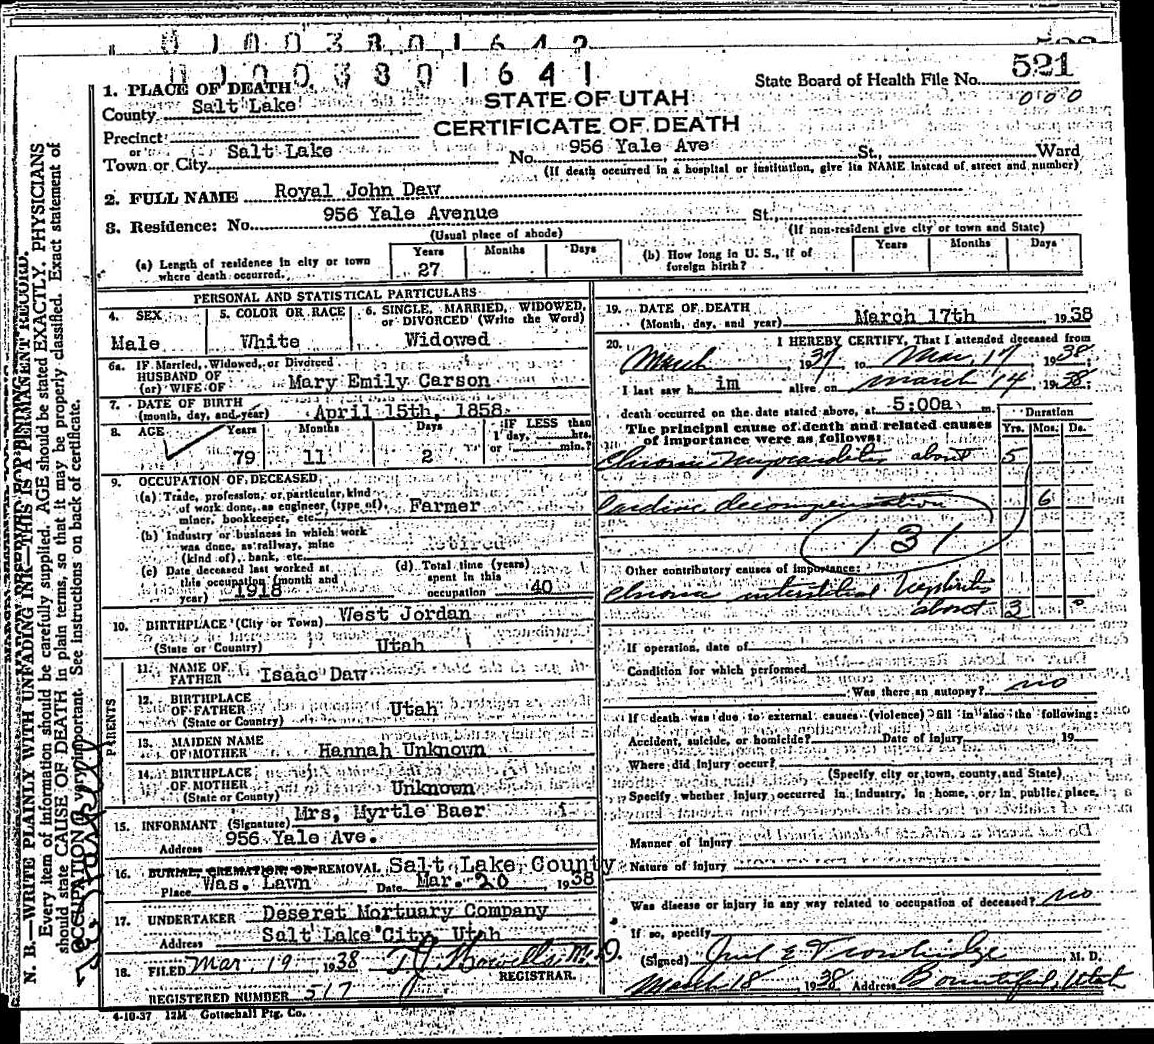 0 1 0 0 3 8 0 1 6 4 2
0 1 0 0 3 8 0 1 6 4 1
State Board of Health File No. 521
000
STATE OF UTAH
CERTIFICATE OF DEATH
1. PLACE OF DEATH
County Salt Lake
Precinct
or
Town or City Salt Lake No. 956 Yale Ave St., Ward
(If death occurred in a hospital or institution, give its NAME instead of street and number)
2. FULL NAME Royal John Daw
3. Residence: No. 956 Yale Avenue St.,
(Usual place of abode) (If non-resident give city or town and State)
(a) Length of residence in city or town where death occurred. Years 27 Months Days
(b) How long in U. S., if of foreign birth? Years Months Days
PERSONAL AND STATISTICAL PARTICULARS
4. SEX Male
5. COLOR OR RACE White
6. SINGLE, MARRIED, WIDOWED, or DIVORCED (Write the Word) Widowed
6a. IF Married, Widowed, or Divorced
HUSBAND OF
(or) WIFE OF Mary Emily Carson
7. DATE OF BIRTH
(month, day, and year) April 15th, 1858
8. AGE Years 79 Months 11 Days 2 IF LESS than 1 day, hrs. or min.?
9. OCCUPATION OF DECEASED
(a) Trade, profession, or particular kind of work done, as engineer, (type of), miner, bookkeeper, etc. Farmer
(b) Industry or business in which work was done, as railway, mine (kind of), bank, etc. Retired
(c) Date deceased last worked at this occupation (month and year) 1918
(d) Total time (years) spent in this occupation 40
10. BIRTHPLACE (City or Town) West Jordan
(State or Country) Utah
PARENTS
11. NAME OF FATHER Isaac Daw
12. BIRTHPLACE OF FATHER Utah
(State or Country)
13. MAIDEN NAME OF MOTHER Hannah Unknown
14. BIRTHPLACE OF MOTHER Unknown
(State or Country)
15. INFORMANT (Signature) Mrs. Myrtle Baer
Address 956 Yale Ave.
16. BURIAL, CREMATION, OR REMOVAL Salt Lake County
Place Was. Lawn Date Mar. 20 1938
17. UNDERTAKER Deseret Mortuary Company
Address Salt Lake City, Utah
18. FILED Mar. 19 1938 T J Howells M.D.
REGISTRAR.
REGISTERED NUMBER 517
4-10-37 12M Gottschall Ptg. Co.
19. DATE OF DEATH
(Month, day, and year) March 17th 1938
20. I HEREBY CERTIFY, That I attended deceased from
March 1937, to Mar. 17 1938
I last saw h im alive on March 14 1938;
death occurred on the date stated above, at 5:00a m.
The principal cause of death and related causes of importance were as follows:
Duration
Yrs. Mos. Ds.
Chronic Myocarditis about 5
Cardiac decompensation 6
131
Other contributory causes of importance:
Chronic interstitial Nephritis
about 3
If operation, date of
Condition for which performed
Was there an autopsy? no
If death was due to external causes (violence) fill in also the following:
Accident, suicide, or homicide? Date of injury 19
Where did injury occur?
(Specify city or town, county, and State)
Specify whether injury occurred in industry, in home, or in public place.
Manner of injury
Nature of injury
Was disease or injury in any way related to occupation of deceased? no
If so, specify
(Signed) Trowbridge M. D.
March 18 1938 Address Bountiful, Utah
N. B.—WRITE PLAINLY WITH UNFADING INK—THIS IS A PERMANENT RECORD.
Every item of information should be carefully supplied. AGE should be stated EXACTLY. PHYSICIANS
should state CAUSE OF DEATH in plain terms, so that it may be properly classified. Exact statement of
OCCUPATION is very important. See instructions on back of certificate.